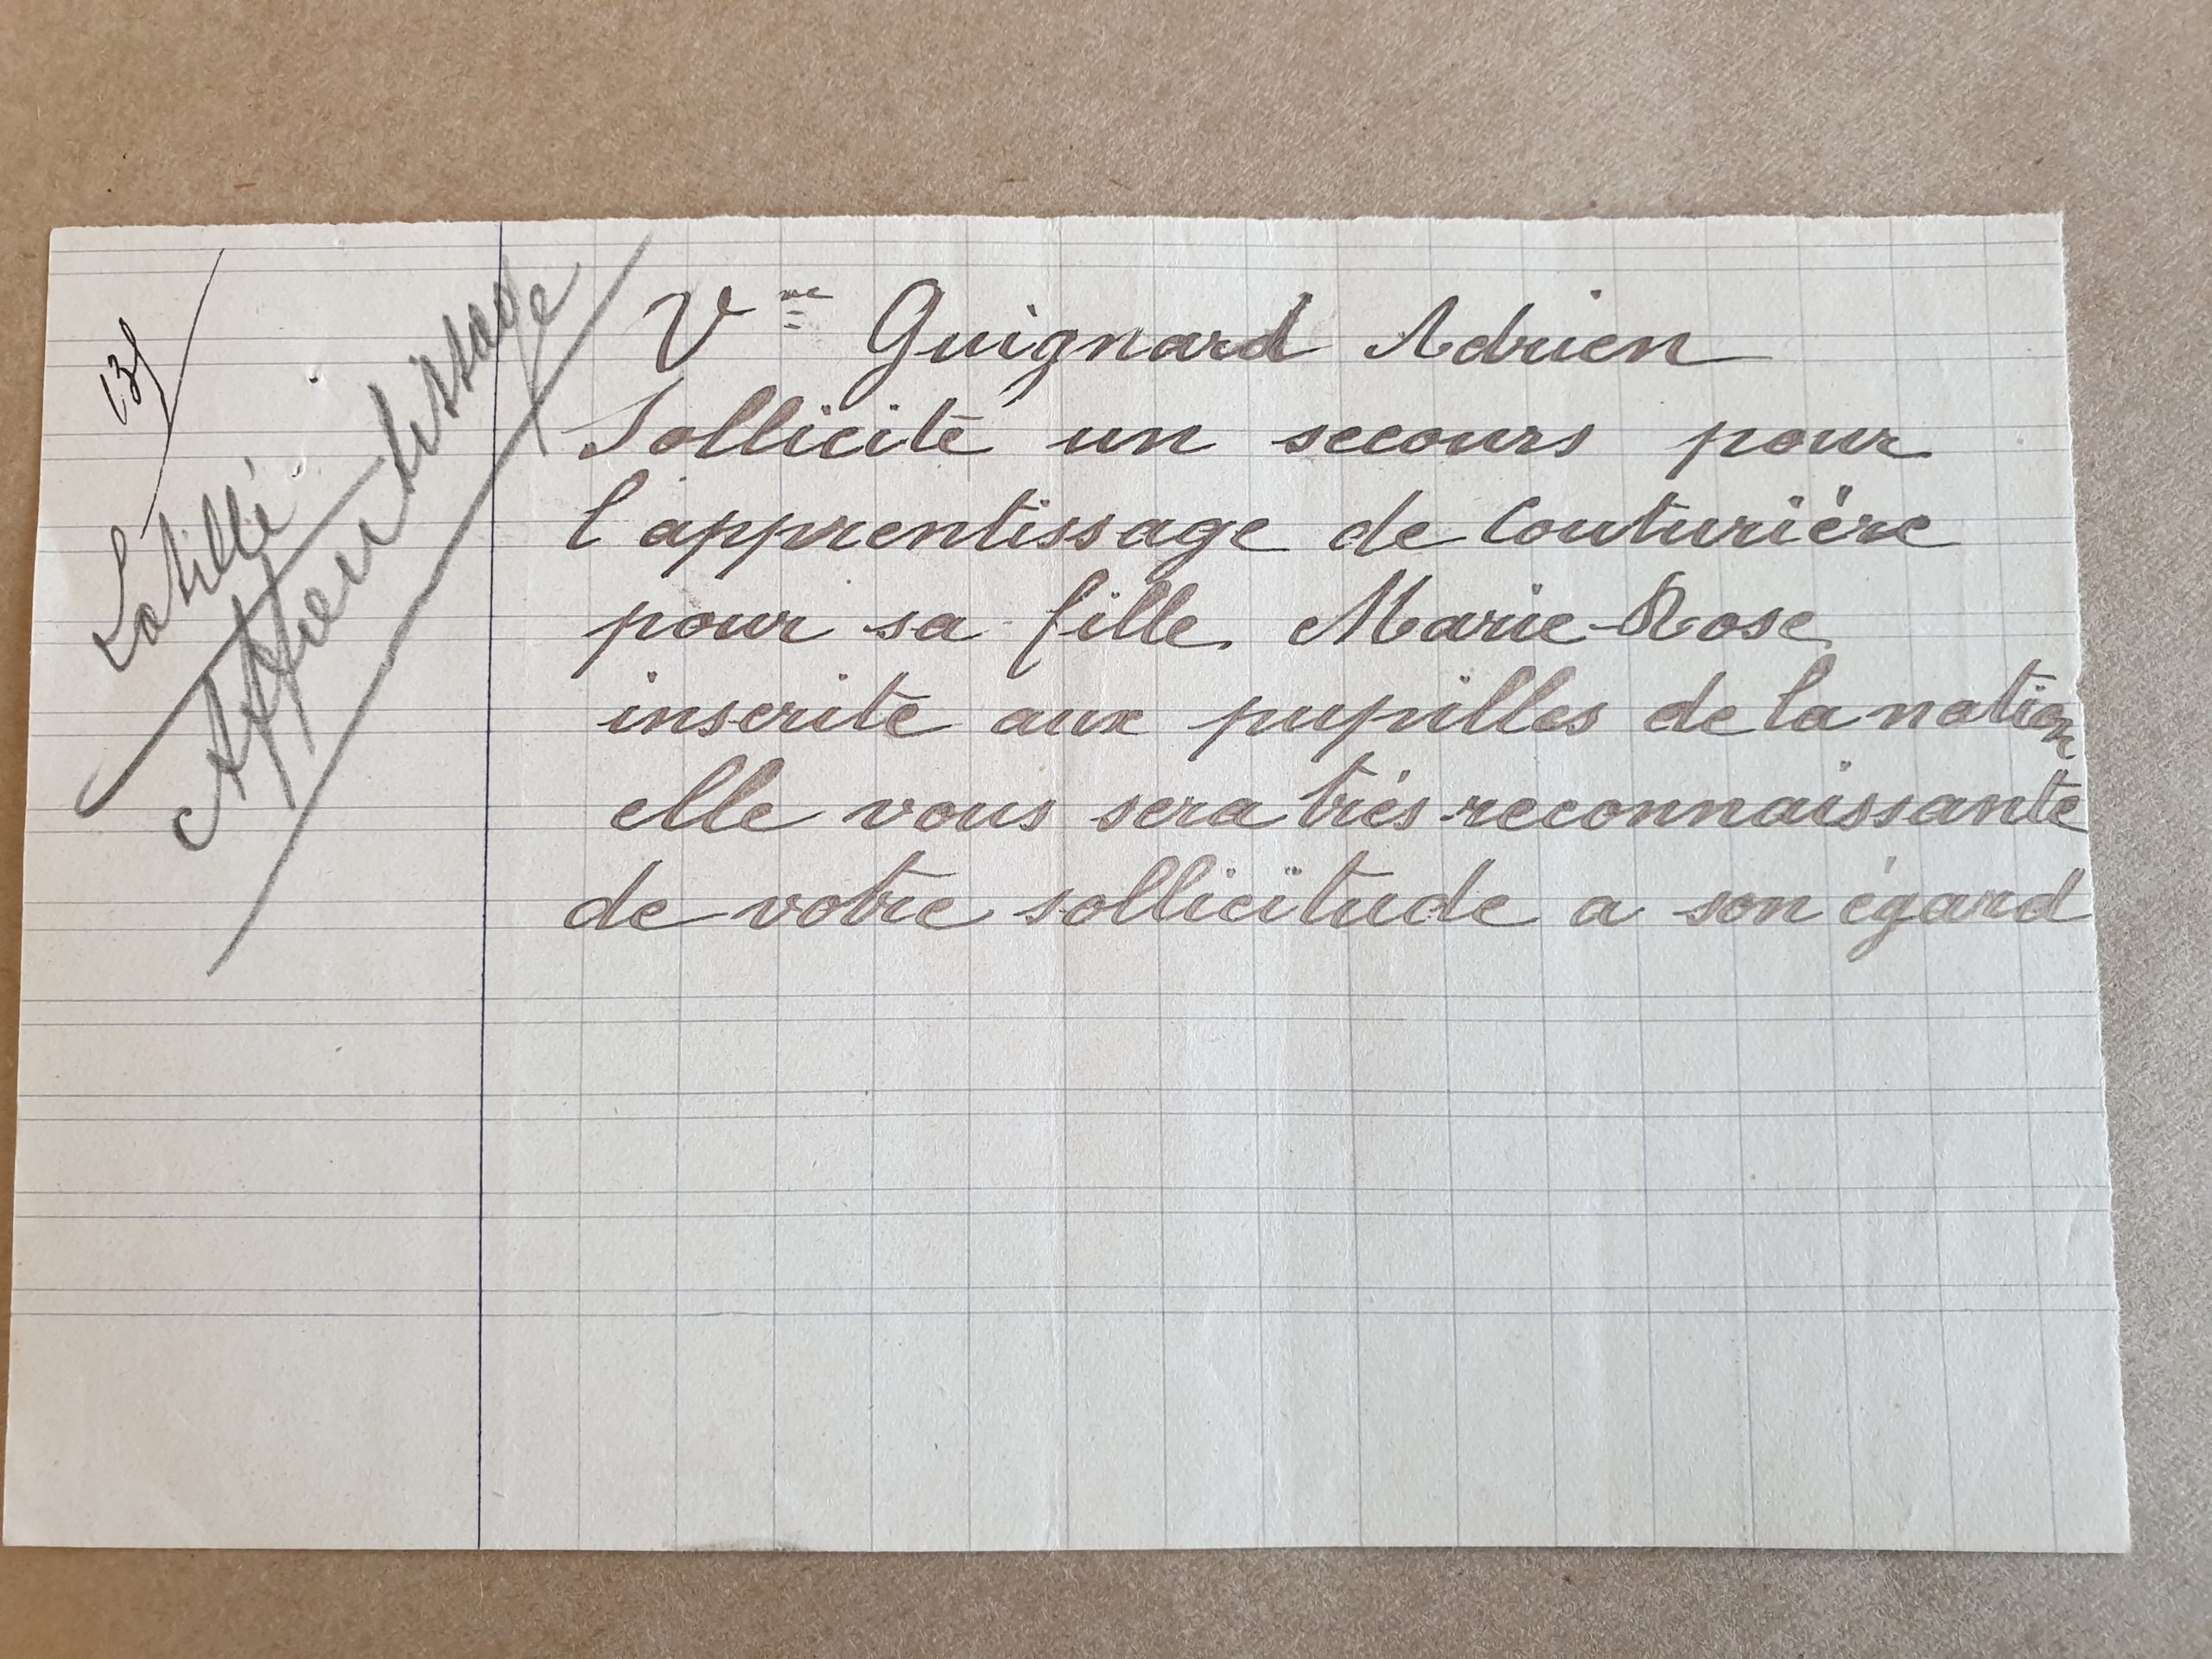 135
Latillé
Apprentissage
Vve Guignard Adrien
Sollicite un secours pour
l'apprentissage de Couturière
pour sa fille Marie-Rose
inscrite aux pupilles de la nation
elle vous sera très reconnaissante
de votre sollicitude a son égard